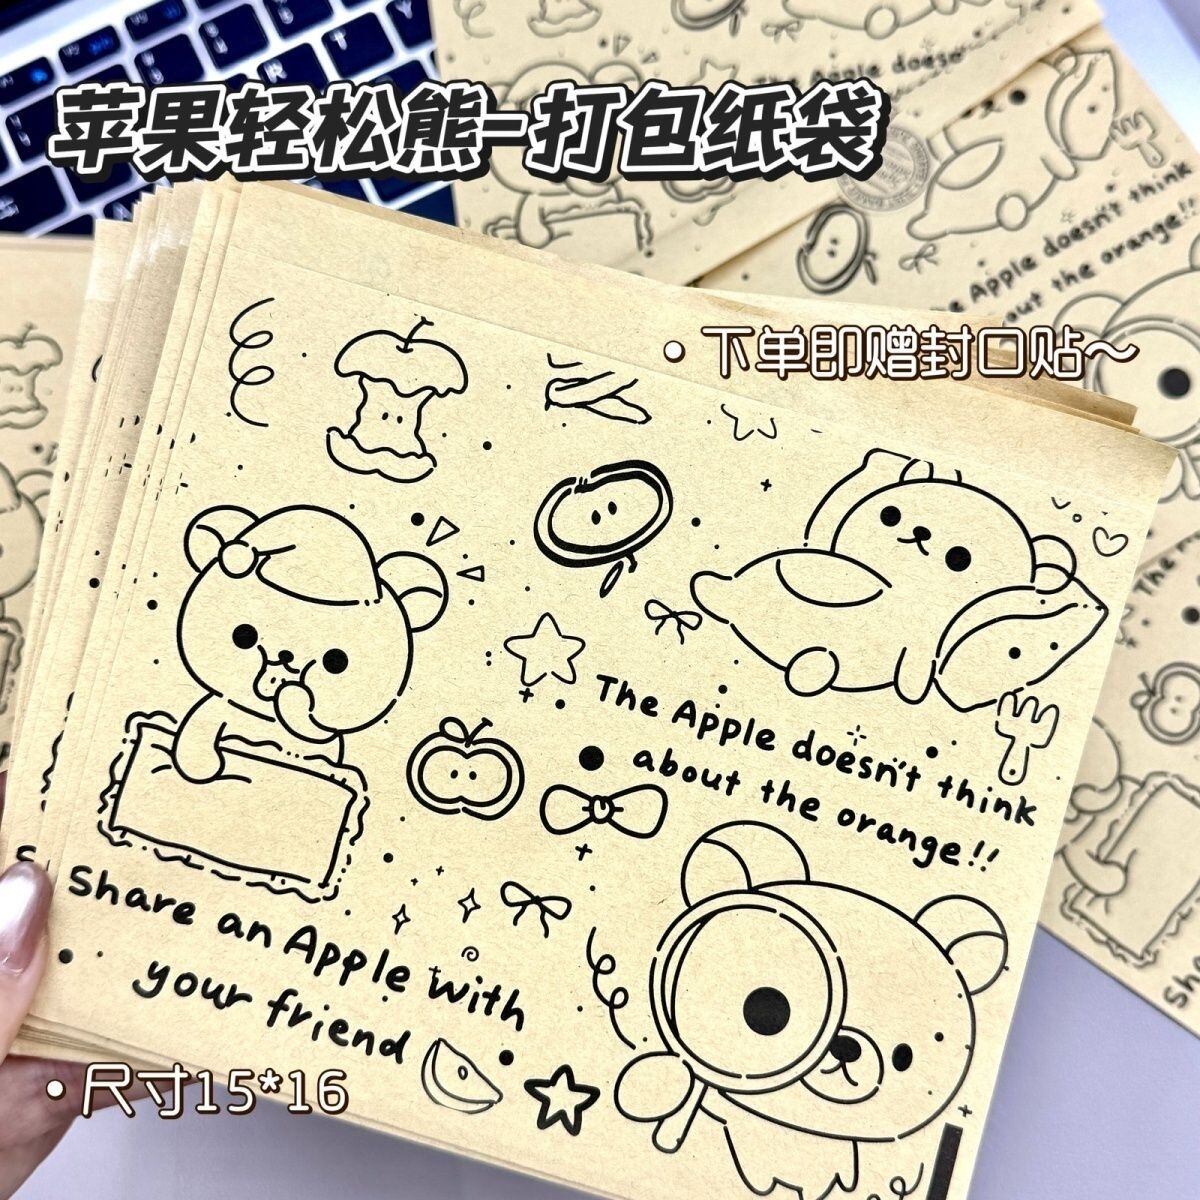 苹果轻松熊-打包纸袋
The Apple doesn't think
about the orange!!
• 下单即赠封口贴~
The Apple doesn't think
about the orange!!
Share an Apple with
your friend
• 尺寸15*16